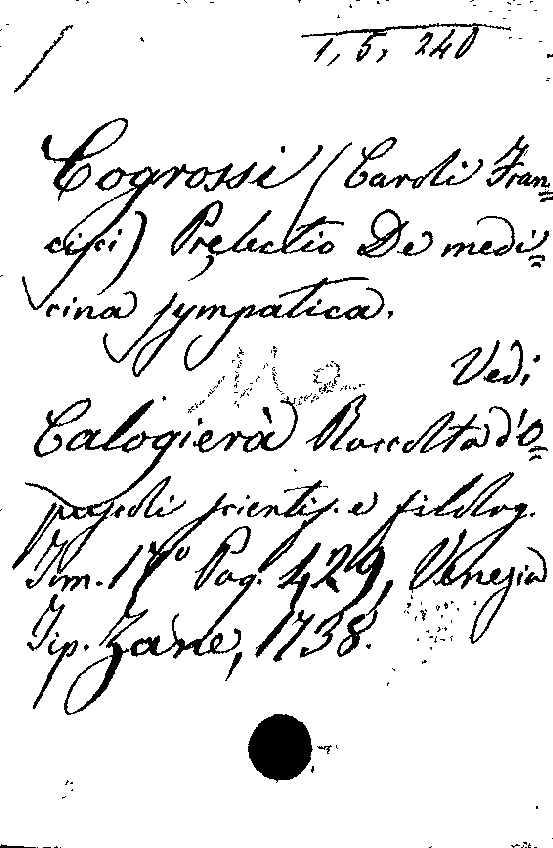 1, 5, 240
Cogrossi (Caroli Fran=
cisci) Pręlectio De medi=
cina sympatica.
Vedi
Calogierà Raccolta d'O=
puscoli scientif. e filolog.
Tom. 17° Pag. 429, Venezia
Tip. Zane, 1738.